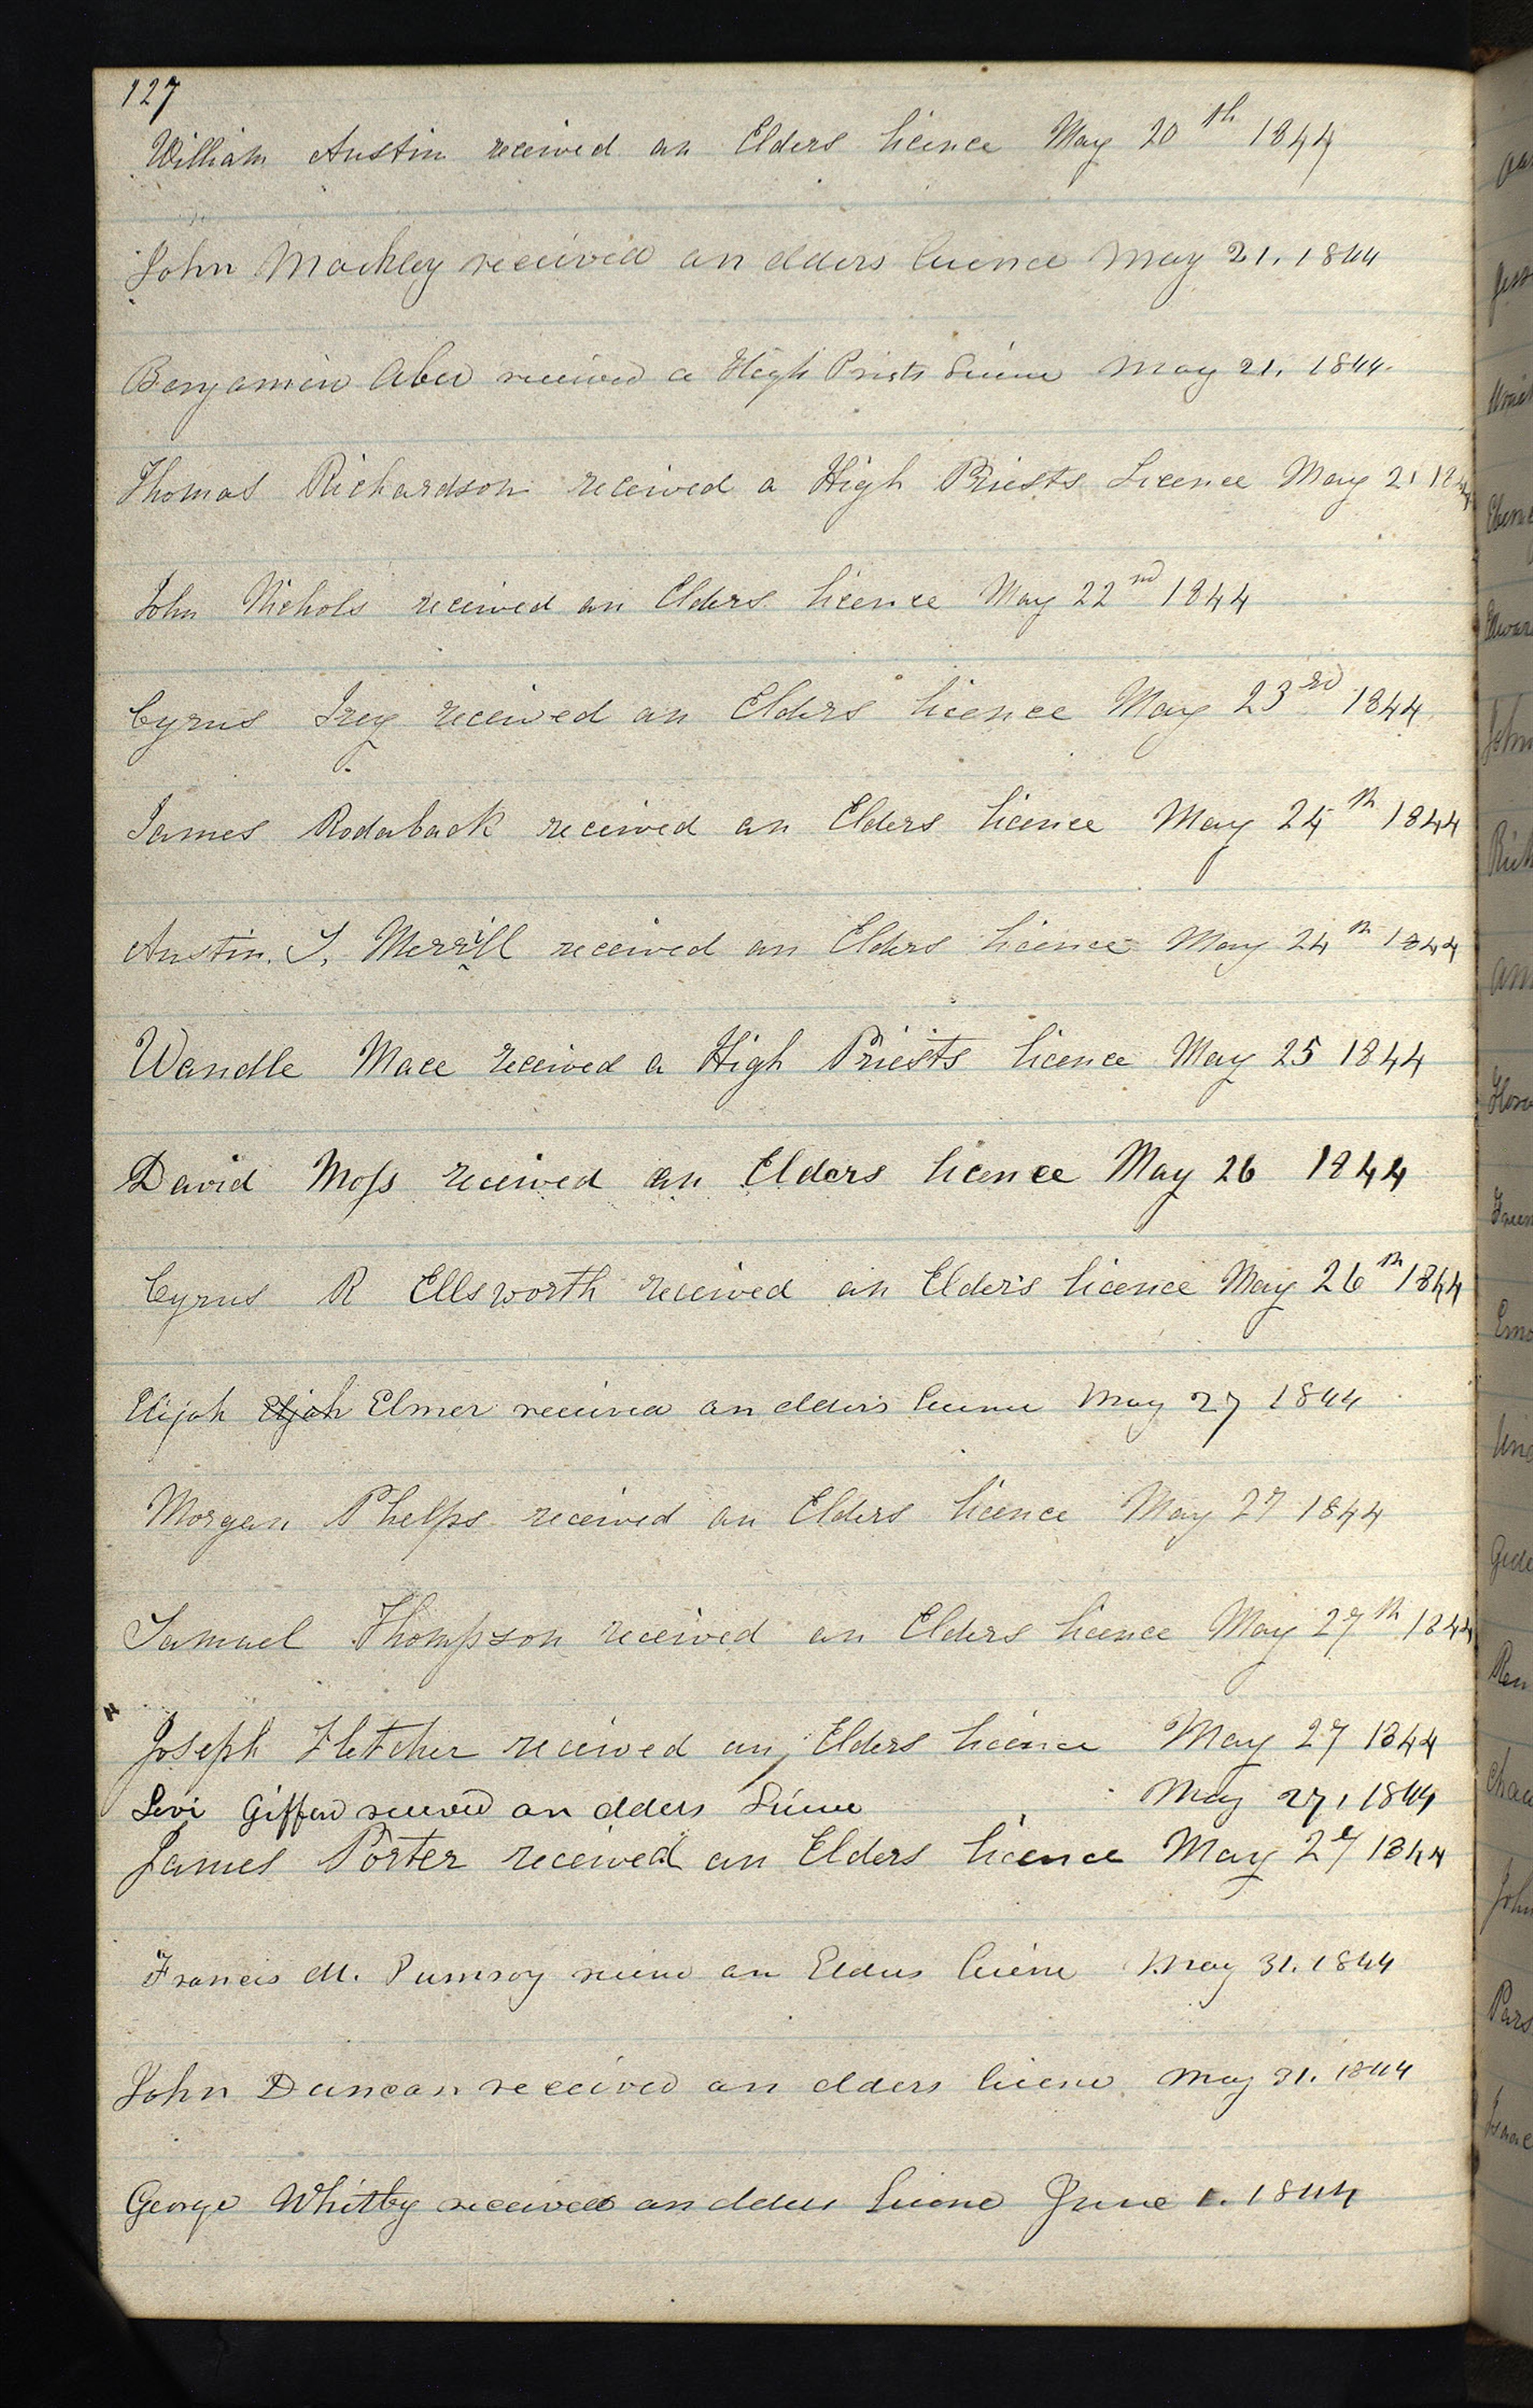 127
William Austin received an Elders licence May 20th 1844
John Mackley received an elders licence May 21. 1844
Benjamin Aber received a High Priests Licence May 21. 1844.
Thomas Richardson received a High Priests Licence May 21 1844
John Nichols received an Elders licence May 22nd 1844
Cyrus Irey received an Elders licence May 23rd 1844
James Rodaback received an Elders licence May 24th 1844
Austin. S. Merrill received an Elders licence May 24th 1844
Wandle Mace received a High Priests licence May 25 1844
David Moss received an Elders licence May 26 1844
Cyrus R Ellsworth received an Elders licence May 26th 1844
Elijah Elijah Elmer received an elders licence May 27 1844
Morgan Phelps received an Elders licence May 27 1844
Samuel Thompson received an Elders licence May 27th 1844
Joseph Fletcher received an Elders licence May 27 1844
Levi Giffen received an elders Licence May 27, 1844
James Porter received an Elders licence May 27 1844
Francis M. Pumroy receivd an Elders licence May 31. 1844
John Duncan received an elders licence May 31. 1844
George Whitby received an elders Licence June 1. 1844